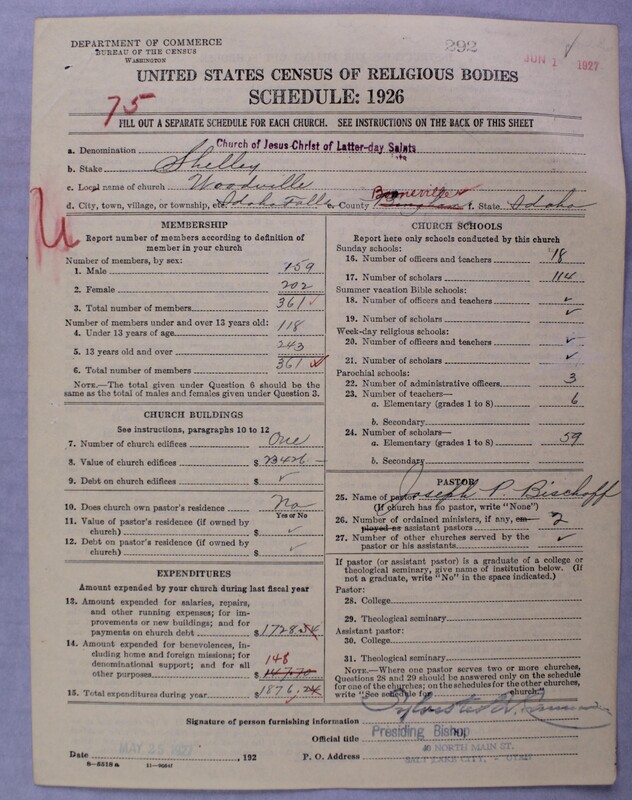 DEPARTMENT OF COMMERCE
BUREAU OF THE CENSUS
WASHINGTON
292
JUN 1 1927
UNITED STATES CENSUS OF RELIGIOUS BODIES
SCHEDULE: 1926
75
FILL OUT A SEPARATE SCHEDULE FOR EACH CHURCH. SEE INSTRUCTIONS ON THE BACK OF THIS SHEET
a. Denomination Church of Jesus Christ of Latter-day Saints
b. Stake Shelley
c. Local name of church Woodville
d. City, town, village, or township, etc. Idaho Falls e. County Bingham Bonneville f. State Idaho
MEMBERSHIP
Report number of members according to definition of
member in your church
Number of members, by sex:
1. Male 159
2. Female 202
3. Total number of members 361
Number of members under and over 13 years old:
4. Under 13 years of age 118
5. 13 years old and over 243
6. Total number of members 361
NOTE.—The total given under Question 6 should be
the same as the total of males and females given under Question 3.
CHURCH BUILDINGS
See instructions, paragraphs 10 to 12
7. Number of church edifices One
8. Value of church edifices $23426
9. Debt on church edifices $ ✓
10. Does church own pastor's residence? No
Yes or No
11. Value of pastor's residence (if owned by
church) $ ✓
12. Debt on pastor's residence (if owned by
church) $ ✓
EXPENDITURES
Amount expended by your church during last fiscal year
13. Amount expended for salaries, repairs,
and other running expenses; for im-
provements or new buildings; and for
payments on church debt $1728.54
14. Amount expended for benevolences, in-
cluding home and foreign missions; for
denominational support; and for all
other purposes $147.70 148
15. Total expenditures during year $1876.24
CHURCH SCHOOLS
Report here only schools conducted by this church
Sunday schools:
16. Number of officers and teachers 18
17. Number of scholars 114
Summer vacation Bible schools:
18. Number of officers and teachers ✓
19. Number of scholars ✓
Week-day religious schools:
20. Number of officers and teachers ✓
21. Number of scholars ✓
Parochial schools:
22. Number of administrative officers 3
23. Number of teachers—
a. Elementary (grades 1 to 8) 6
b. Secondary
24. Number of scholars—
a. Elementary (grades 1 to 8) 59
b. Secondary
PASTOR
25. Name of pastor Joseph P Bischoff
(If church has no pastor, write "None")
26. Number of ordained ministers, if any, em-
ployed as assistant pastors 2
27. Number of other churches served by the
pastor or his assistants ✓
If pastor (or assistant pastor) is a graduate of a college or
theological seminary, give name of institution below. (If
not a graduate, write "No" in the space indicated.)
Pastor:
28. College
29. Theological seminary
Assistant pastor:
30. College
31. Theological seminary
NOTE.—Where one pastor serves two or more churches,
Questions 28 and 29 should be answered only on the schedule
for one of the churches; on the schedules for the other churches,
write "See schedule for church."
Signature of person furnishing information
Official title Presiding Bishop
40 NORTH MAIN ST.
Date MAY 25 1927, 192 P. O. Address SALT LAKE CITY, - UTAH
8—5518 a 11—9684